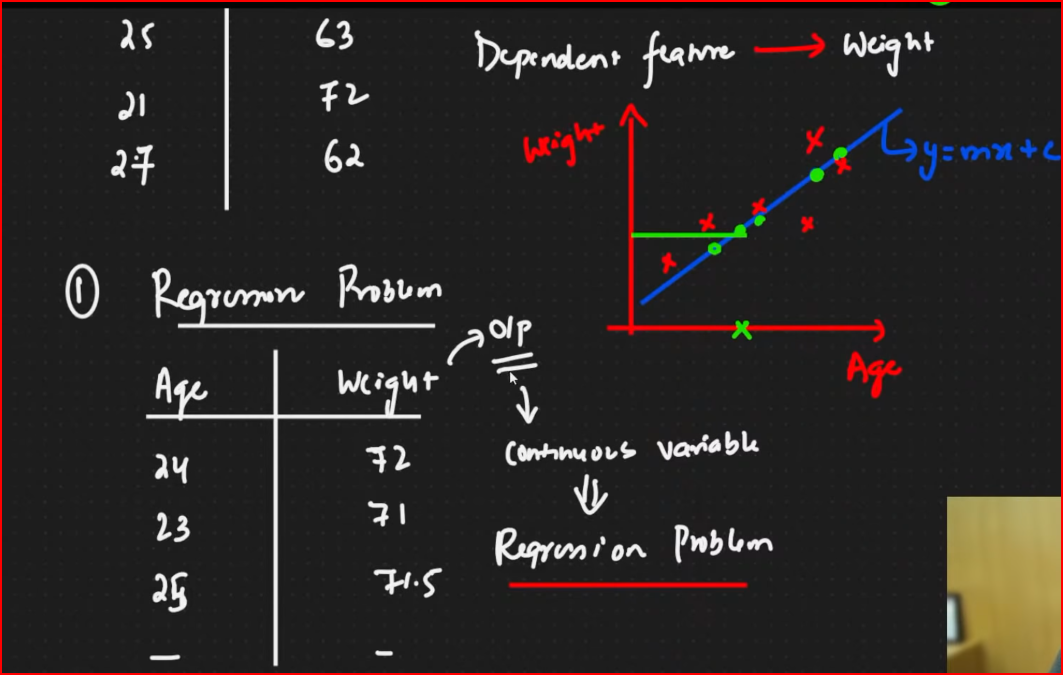 25 63
21 72
27 62
Dependent feature → Weight
Weight
y=mx+c
Age
① Regression Problem
Age Weight → O/P
24 72
23 71
25 71.5
— –
Continuous variable
Regression Problem